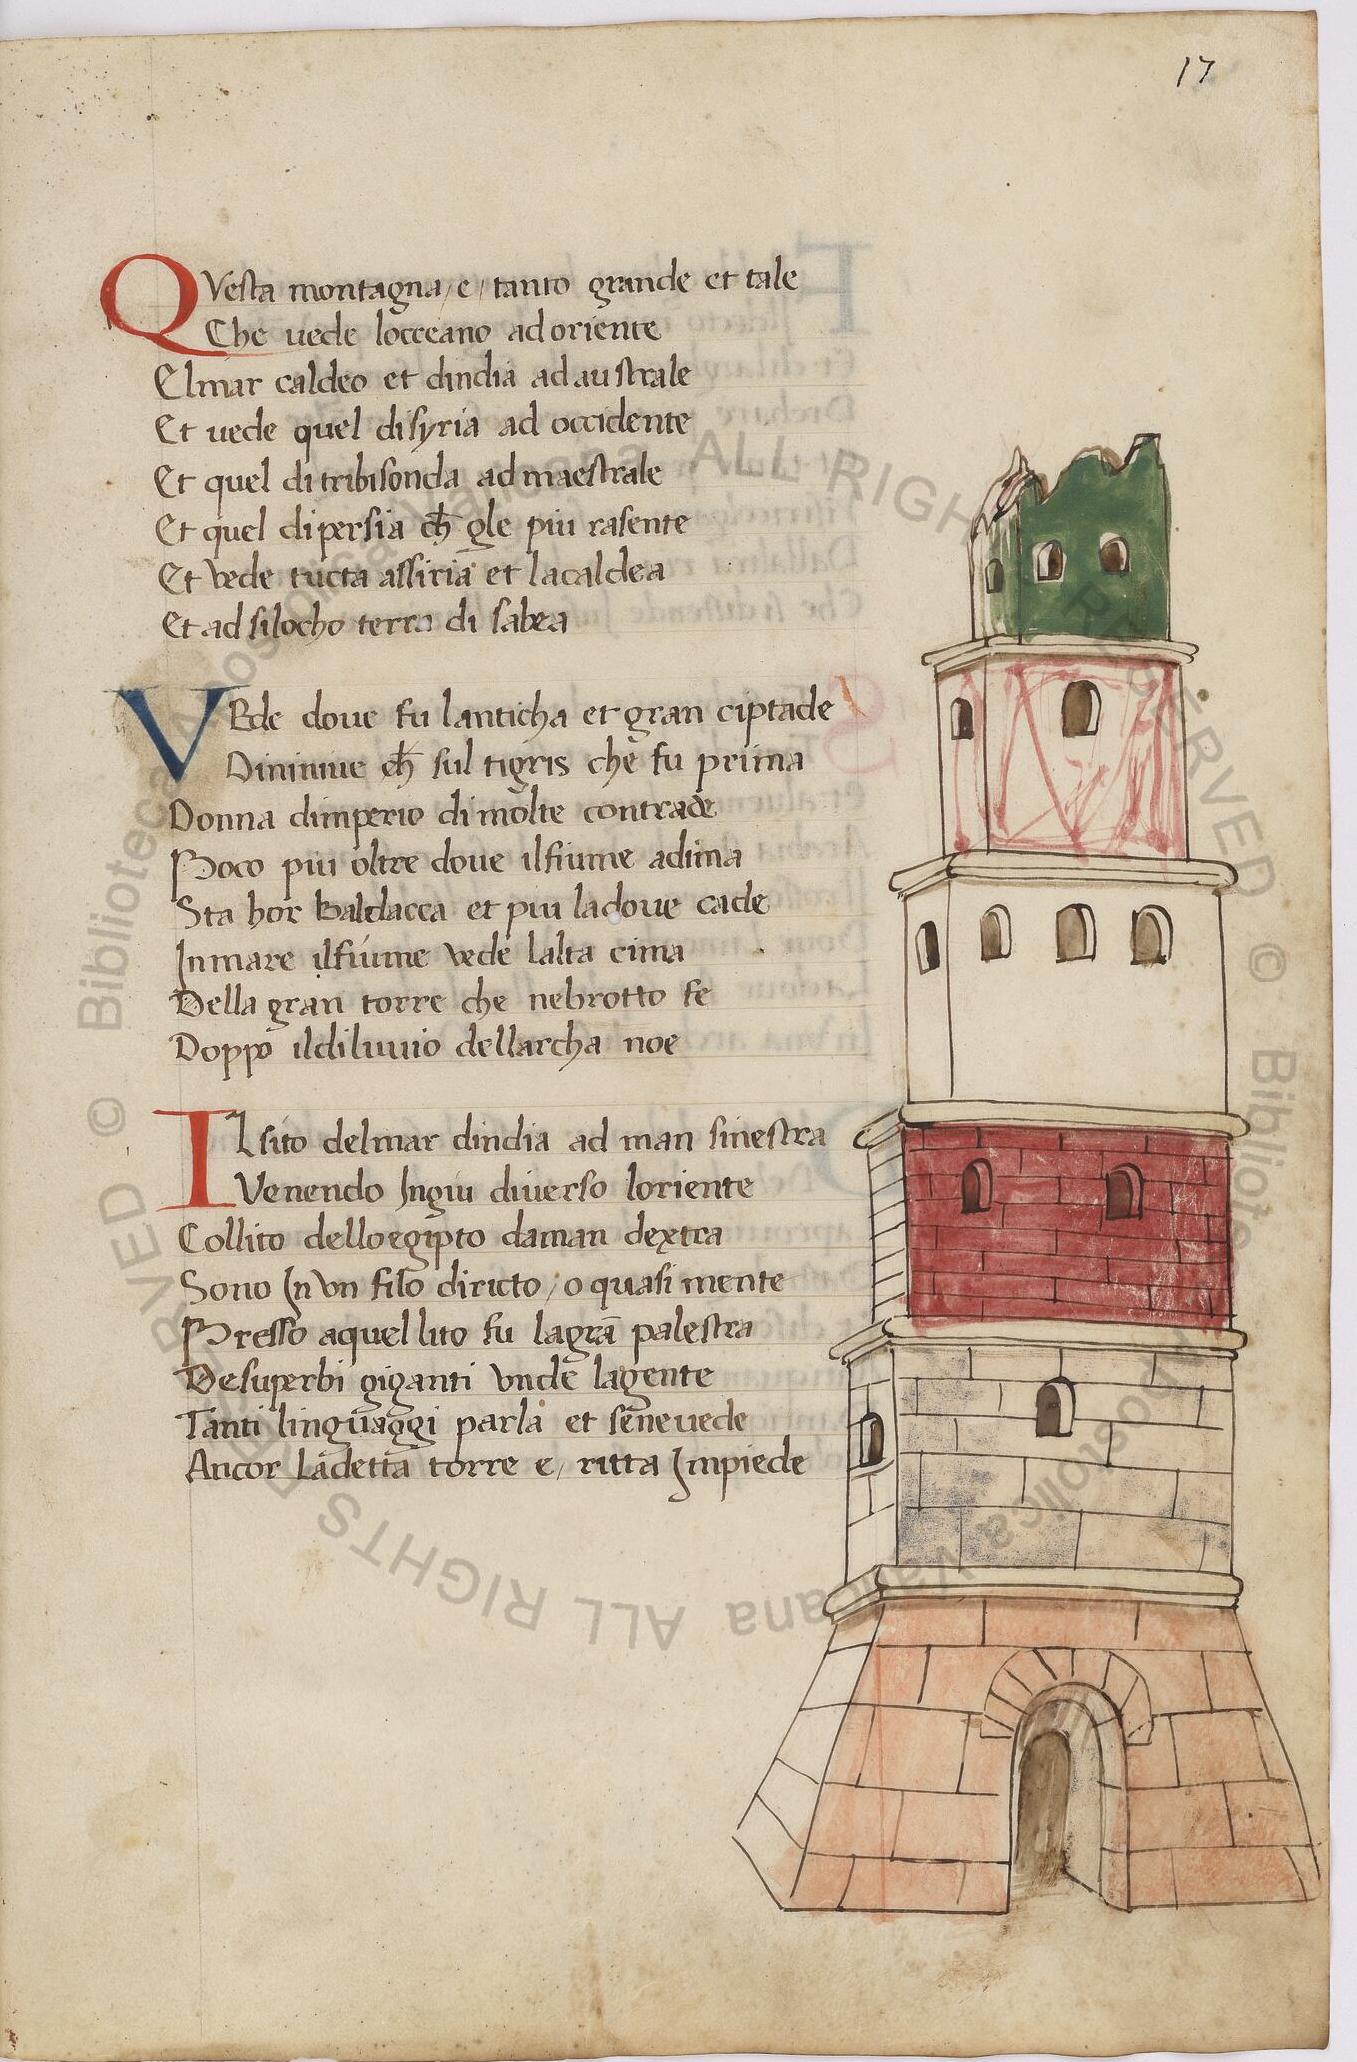 17
QVesta montagna / e / tanto grande et tale
Che uede locceano ad oriente
Elmar caldeo et dindia ad australe
Et uede quel disyria ad occidente
Et quel di tribisonda ad maestrale
Et quel dipersia ch̄ gle piu rasente
Et vede tucta assiria et lacaldea
Et ad silocho terra di sabea
VEde doue fu lanticha et gran ciptade
Dininiue ch̄ sul tigris che fu prima
Donna dimperio di molte contrade
Poco piu oltre doue ilfiume adima
Sta hor Baldacca et piu ladoue cade
Inmare ilfiume vede lalta cima
Della gran torre che nebrotto fe
Doppo ildiluuio dellarcha noe
IL sito delmar dindia ad man sinestra
Venendo Ingiu diuerso loriente
Collito delloegipto daman dextra
Sono In vn filo diricto / o quasi mente
Presso aquel lito fu lagrā palestra
Desuperbi giganti vnde lagente
Tanti linguaggi parla et seneuede
Ancor Ladetta torre e / ritta Impiede
© Biblioteca Apostolica Vaticana ALL RIGHTS RESERVED
© Biblioteca Apostolica Vaticana ALL RIGHTS RESERVED